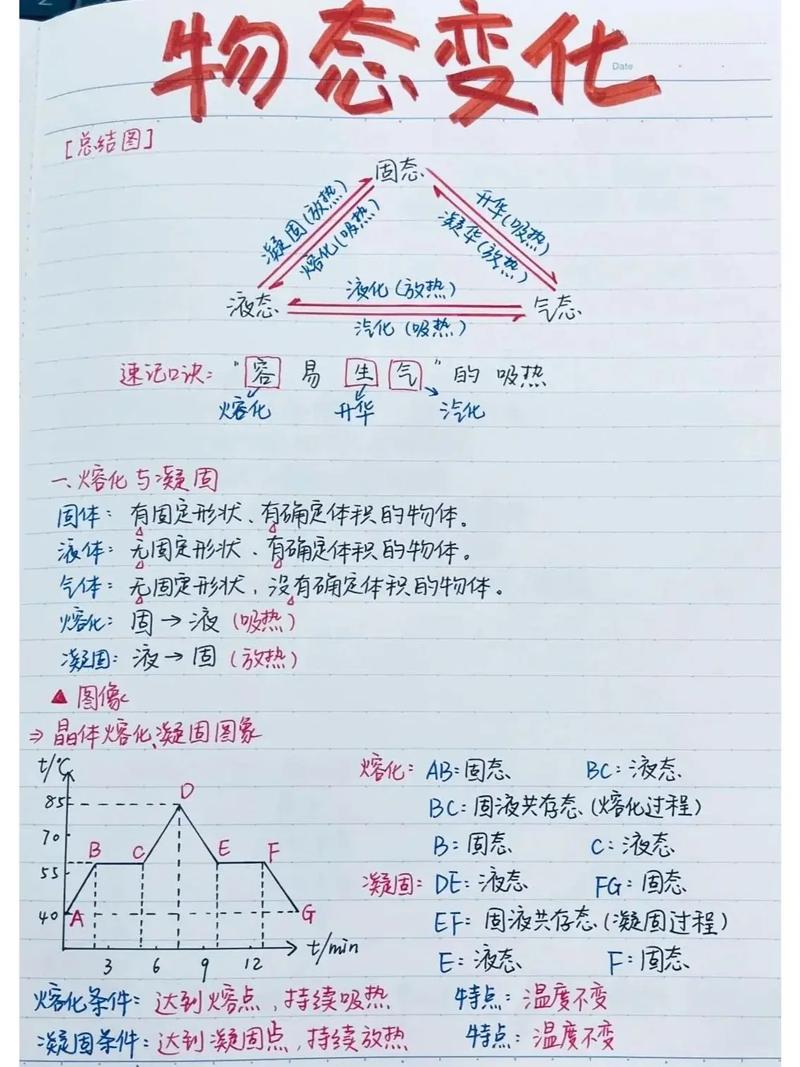 物态变化
Date
[总结图]
固态
凝固(放热)
熔化(吸热)
升华(吸热)
凝华(放热)
液态
液化(放热)
汽化(吸热)
气态
速记口诀: "容易生气"的吸热
熔化 升华 汽化
一、熔化与凝固
固体: 有固定形状、有确定体积的物体。
液体: 无固定形状、有确定体积的物体。
气体: 无固定形状, 没有确定体积的物体。
熔化: 固→液 (吸热)
凝固: 液→固 (放热)
▲ 图像
⇒ 晶体熔化、凝固图象
t/℃
85
70
55
40
A
B
C
D
E
F
G
3 6 9 12
t/min
熔化: AB:固态 BC:液态
BC: 固液共存态 (熔化过程)
B: 固态 C: 液态
凝固: DE: 液态 FG: 固态
EF: 固液共存态 (凝固过程)
E: 液态 F: 固态
熔化条件: 达到熔点, 持续吸热 特点: 温度不变
凝固条件: 达到凝固点, 持续放热 特点: 温度不变